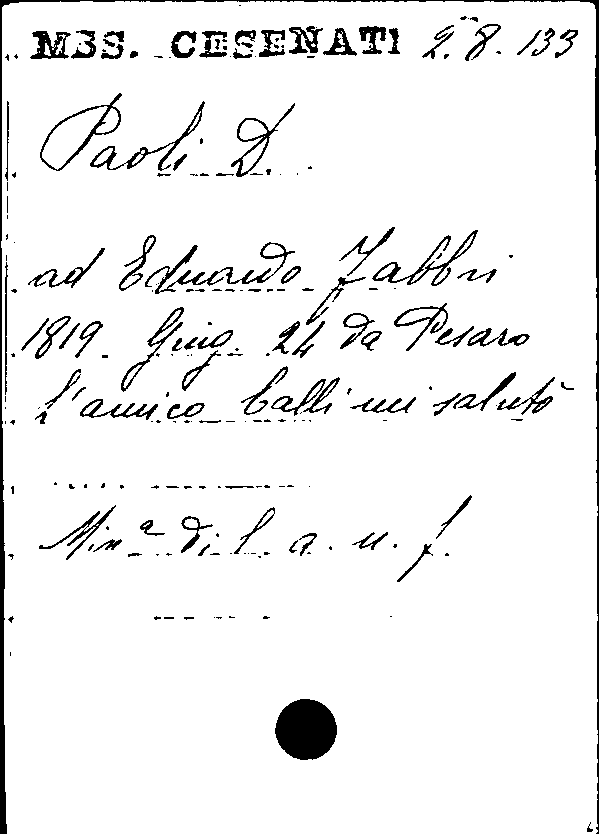 MSS. CESENATI 2.8.133
Paoli D.
ad Eduardo Fabbri
1819. Giug. 24 da Pesaro
L'amico Calli mi salutò
Min.ª di l. a. n. f.